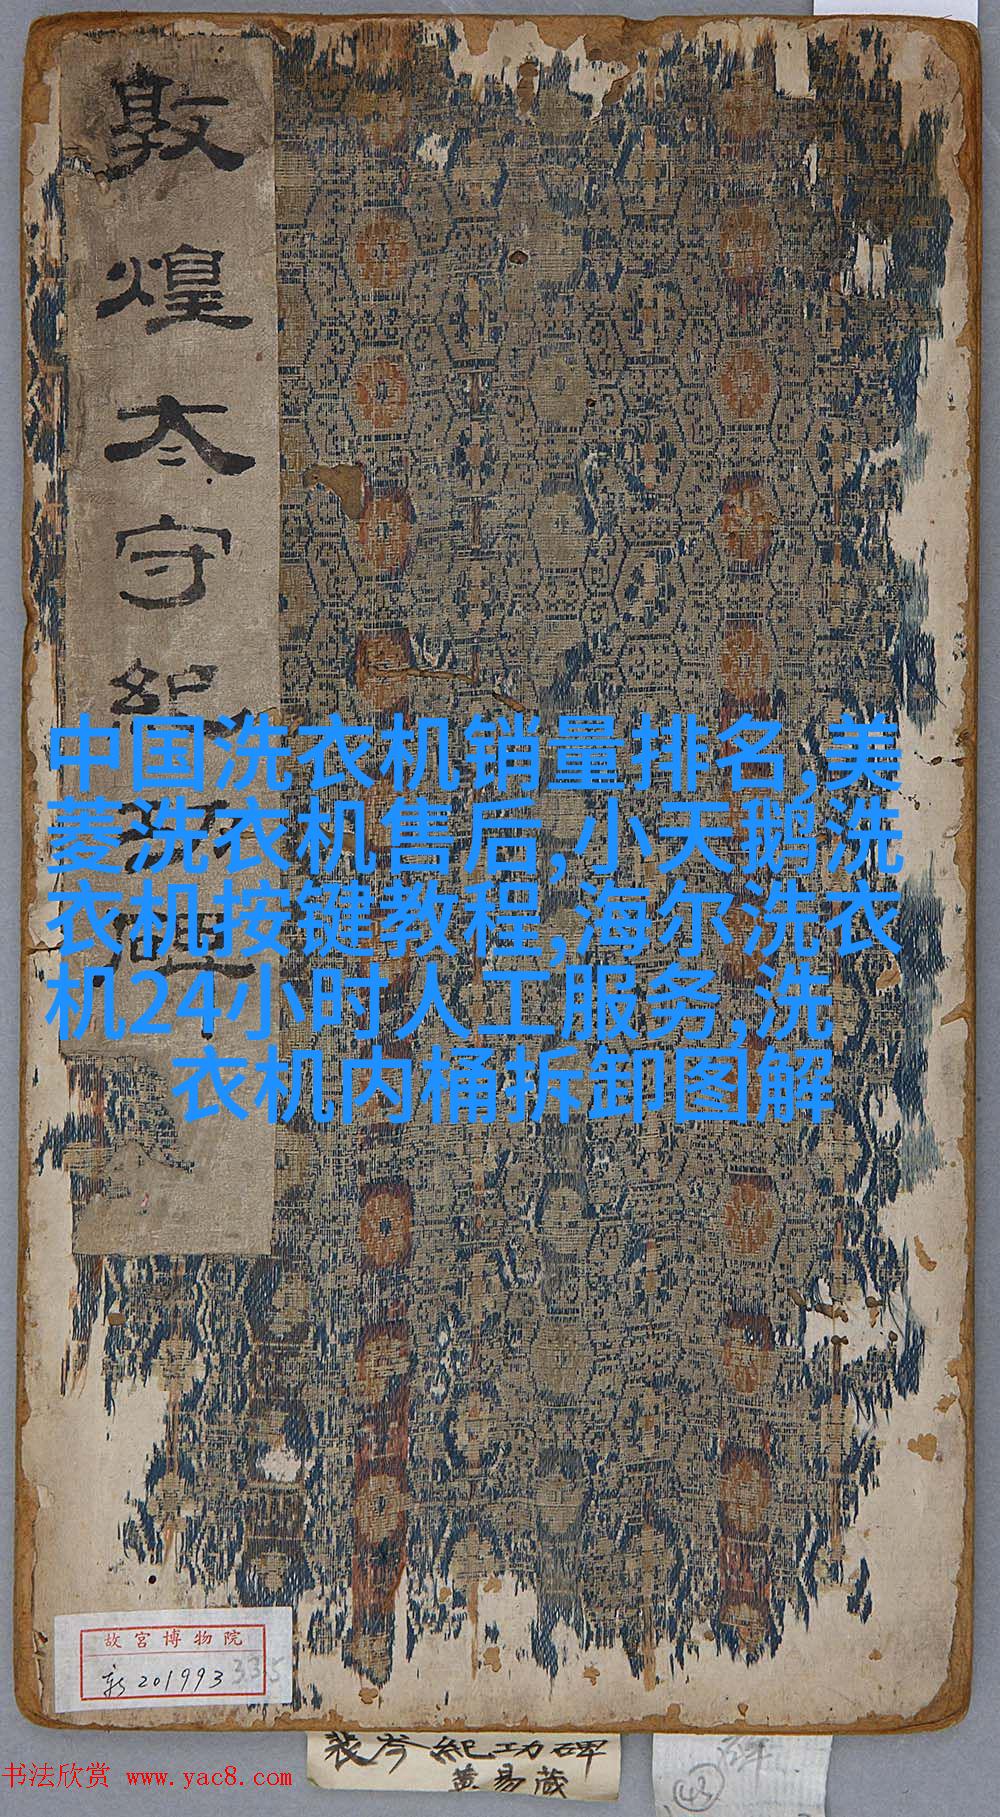 敦煌太守紀
中国洗衣机销量排名,美
菱洗衣机售后,小天鹅洗
衣机按键教程,海尔洗衣
机24小时人工服务,洗
衣机内桶拆卸图解
故宫博物院
新201993 335
裴岑紀功碑
黄易藏
43
书法欣赏 www.yac8.com